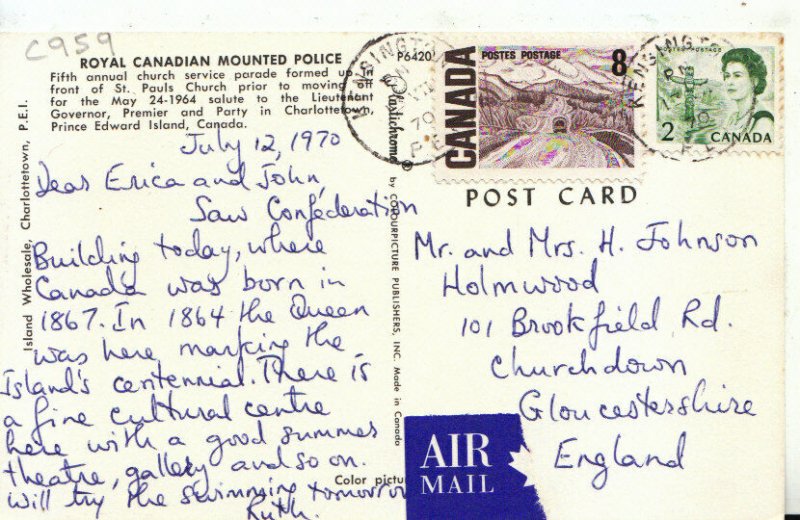 C959
ROYAL CANADIAN MOUNTED POLICE
Fifth annual church service parade formed up in
front of St. Pauls Church prior to moving off
for the May 24-1964 salute to the Lieutenant
Governor, Premier and Party in Charlottetown,
Prince Edward Island, Canada.
July 12, 1970
Dear Erica and John,
Saw Confederation
Building today, where
Canada was born in
1867. In 1864 the Queen
was here, marking the
Island's centennial. There is
a fine cultural centre
here with a good summer
theatre, gallery and so on.
Will try the swimming tomorrow
Ruth.
Island Wholesale, Charlottetown, P.E.I.
P6420
Plastichrome ® by COLOURPICTURE PUBLISHERS, INC. Made in Canada
Color pictu
KENSINGTON
70
P E
POSTES POSTAGE
8
CANADA
KENSINGT
PM
70
POSTES POSTAGE
2
CANADA
POST CARD
Mr. and Mrs. H. Johnson
Holmwood
101 Brookfield Rd.
Churchdown
Gloucestershire
England
AIR
MAIL